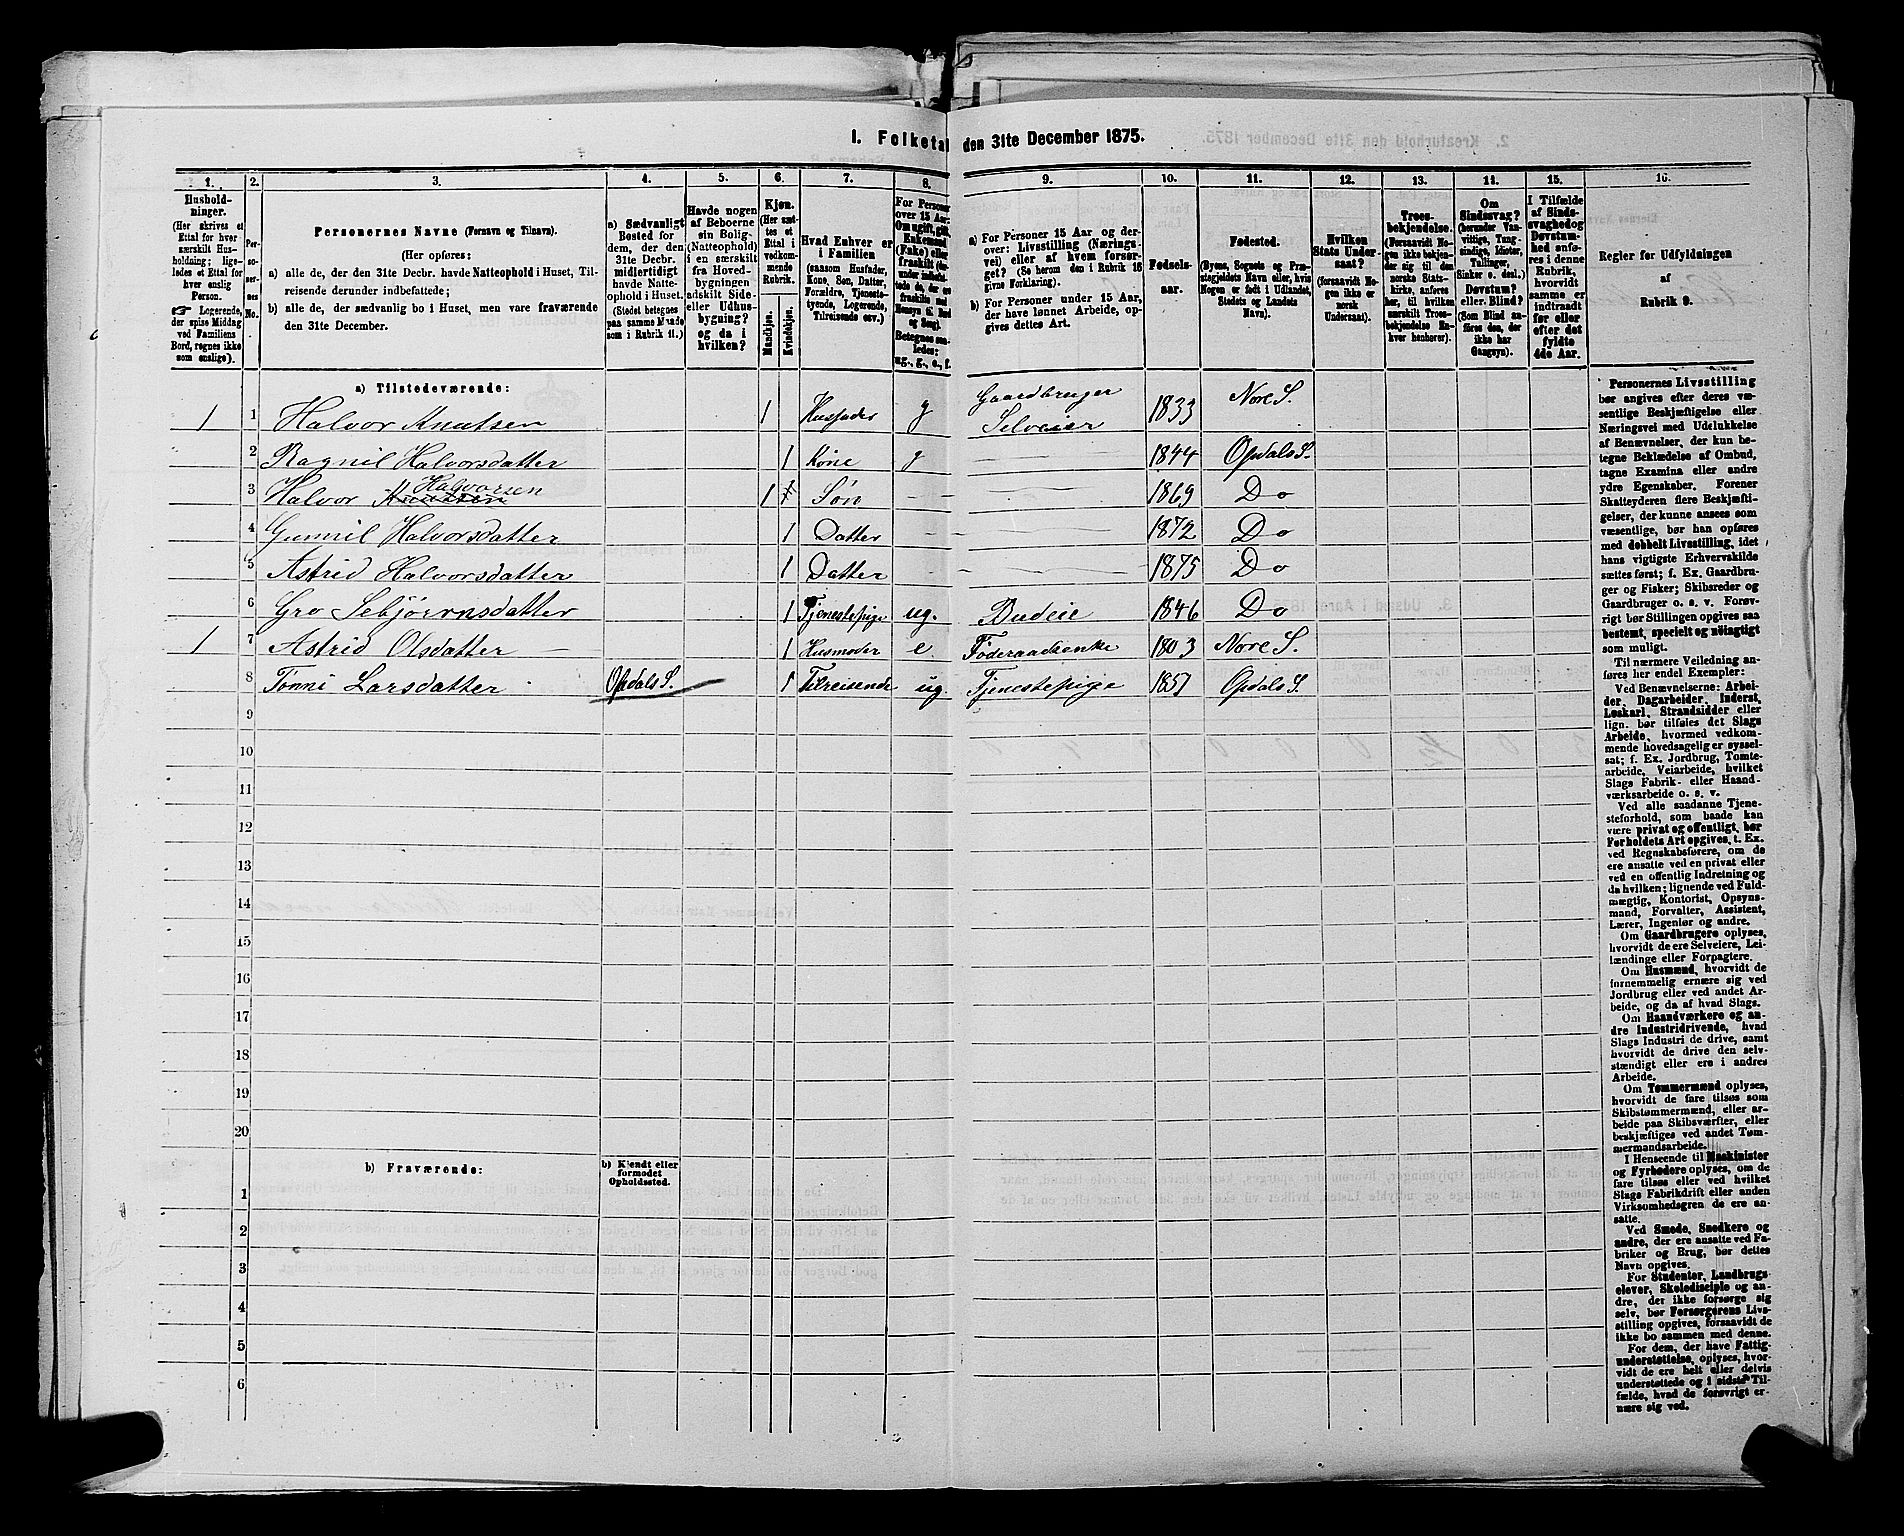 1. Folketal den 31te December 1875.
1. 2. 3. 4. 5. 6. 7. 8. 9. 10. 11. 12. 13. 14. 15. 16.
Hushold-
ninger.
(Her skrives et
Ettal for hver
særskilt Hus-
holdning; lige-
ledes et Ettal for
hver enslig
Person.
Logerende,
der spise Middag
ved Familiens
Bord, regnes ikke
som enslige).
Per-
so-
ner-
nes
No.
Personernes Navne (Fornavn og Tilnavn).
(Her opføres:
a) alle de, der den 31te Decbr. havde Natteophold i Huset, Til-
reisende derunder indbefattede;
b) alle de, der sædvanlig bo i Huset, men vare fraværende
den 31te December.
a) Sædvanligt
Bosted for
dem, der den
31te Decbr.
midlertidigt
havde Natte-
ophold i Huset.
(Stedet betegnes
paa samme Maade
som i Rubrik 11.)
Havde nogen
af Beboerne
sin Bolig
(Natteophold)
i en særskilt
fra Hoved-
bygningen
adskilt Side-
eller Udhus-
bygning?
og da i
hvilken?
Kjøn.
(Her sæt-
tes et
Ettal i
vedkom-
mende
Rubrik.
Mandkjøn.
Kvindekjøn.
Hvad Enhver er
i Familien
(saasom Husfader,
Kone, Søn, Datter,
Forældre, Tjeneste-
tyende, Logerende,
Tilreisende osv.)
For Personer
over 15 Aar:
Om ugift, gift,
Enkemand
(Enke) eller
fraskilt
Betegnes saa-
ledes:
ug., g., e., f.
a) For Personer 15 Aar og der-
over: Livsstilling (Nærings-
vei) eller af hvem forsør-
get? (Se herom den i Rubrik 16
givne Forklaring).
b) For Personer under 15 Aar,
der have lønnet Arbeide, op-
gives dettes Art.
Fødsels-
aar.
Fødested.
(Byens, Sognets og Præ-
stegjeldets Navn eller, hvis
Nogen er født i Udlandet,
Stedets og Landets
Navn).
Hvilken
Stats Under-
saat?
(forsaavidt No-
gen ikke er
norsk
Undersaat).
Troes-
bekjendelse.
(Forsaavidt No-
gen ikke bekjen-
der sig til den
norske Stats-
kirke, anføres
her, til hvilken
særskilt Troes-
bekjendelse En-
hver henhører).
Om
Sindssvag?
(herunder Van-
vittige, Tung-
sindige, Idioter,
Tullinger,
Sinker o. desl.)
Døvstum?
eller Blind?
(Som Blind an-
føres den, der
ikke har
Gangsyn).
I Tilfælde
af Sinds-
svaghed og
Døvstum-
hed anfø-
res i denne
Rubrik,
hvorvidt
samme er
indtraadt
før eller
efter det
fyldte
4de Aar.
Regler for Udfyldningen
af
Rubrik 9.
a) Tilstedeværende:
1 1 Halvor Knutsen 1 Husfader g Gaardbruger Selveier 1833 Nore S.
2 Ragnil Halvorsdatter 1 Kone g 1844 Opdals S.
3 Halvor Knutsen Halvorsen 1 1 Søn 1869 Do
4 Gunnil Halvorsdatter 1 Datter 1872 Do
5 Astrid Halvorsdatter 1 Datter 1875 Do
6 Gro Sebjørnsdatter 1 Tjenestepige ug. Budeie 1846 Do
1 7 Astrid Olsdatter 1 Husmoder e. Føderaadsenke 1803 Nore S.
8 Tønni Larsdatter Opdals S. 1 Tilreisende ug Tjenestepige 1857 Opdals S.
9
10
11
12
13
14
15
16
17
18
19
20
b) Fraværende:
b) Kjendt eller
formodet
Opholdssted.
1
2
3
4
5
6
Personernes Livsstilling
bør angives efter deres væ-
sentlige Beskjæftigelse eller
Næringsvei med Udelukkelse
af Benævnelser, der kun be-
tegne Beklædelse af Ombud,
tagne Examina eller andre
ydre Egenskaber. Forener
Skatteyderen flere Beskjæfti-
gelser, der kunne ansees som
væsentlige, bør han opføres
med dobbelt Livsstilling, idet
hans vigtigste Erhvervskilde
sættes først; f. Ex. Gaardbru-
ger og Fisker; Skibsreder og
Gaardbruger o. s. v. Forøv-
rigt bør Stillingen opgives saa
bestemt, specielt og nøiagtigt
som muligt.
Til nærmere Veiledning an-
føres her endel Exempler:
Ved Benævnelserne: Arbei-
der, Dagarbeider, Inderst,
Løskarl, Strandsidder eller
lign. bør tilføies det Slags
Arbeide, hvormed vedkom-
mende hovedsagelig er syssel-
sat; f. Ex. Jordbrug, Tomte-
arbeide, Veiarbeide, hvilket
Slags Fabrik- eller Haand-
værksarbeide o. s. v.
Ved alle saadanne Tjene-
steforhold, som baade kan
være privat og offentligt, bør
Forholdets Art opgives, t. Ex.
ved Regnskabsførere, om de
ere ansatte ved en privat eller
ved en offentlig Indretning og
da hvilken; lignende ved Fuld-
mægtig, Kontorist, Opsyns-
mand, Forvalter, Assistent,
Lærer, Ingeniør og andre.
Om Gaardbrugere oplyses,
hvorvidt de ere Selveiere, Lei-
lændinge eller Forpagtere.
Om Husmænd, hvorvidt de
fornemmelig ernære sig ved
Jordbrug eller ved andet Ar-
beide, og da af hvad Slags.
Om Haandværkere og an-
dre Industridrivende, hvad
Slags Industri de drive, samt
hvorvidt de drive den selv-
stændigt eller ere i andres
Arbeide.
Om Tømmermænd oplyses,
hvorvidt de fare tilsøs som
Skibstømmermænd, eller ar-
beide paa Skibsværfter, eller
beskjæftiges ved andet Tøm-
mermandsarbeide.
I Henseende til Maskinister
og Fyrbødere oplyses, om de
fare tilsøs eller ved hvilket
Slags Fabrikdrift eller anden
Virksomhedsgren de ere an-
satte.
Ved Smede, Snedkere og
andre, der ere ansatte ved Fa-
briker og Brug, bør dettes
Navn opgives.
For Studenter, Landbrugs-
elever, Skoledisciple og an-
dre, der ikke forsørge sig
selv, bør Forsørgerens Livs-
stilling opgives, forsaavidt de
ikke bo sammen med denne.
For dem, der have Fattig-
understøttelse, oplyses, hvor-
vidt de ere helt eller delvis
understøttede og i sidste Til-
fælde, hvad de forøvrigt er-
nære sig ved.